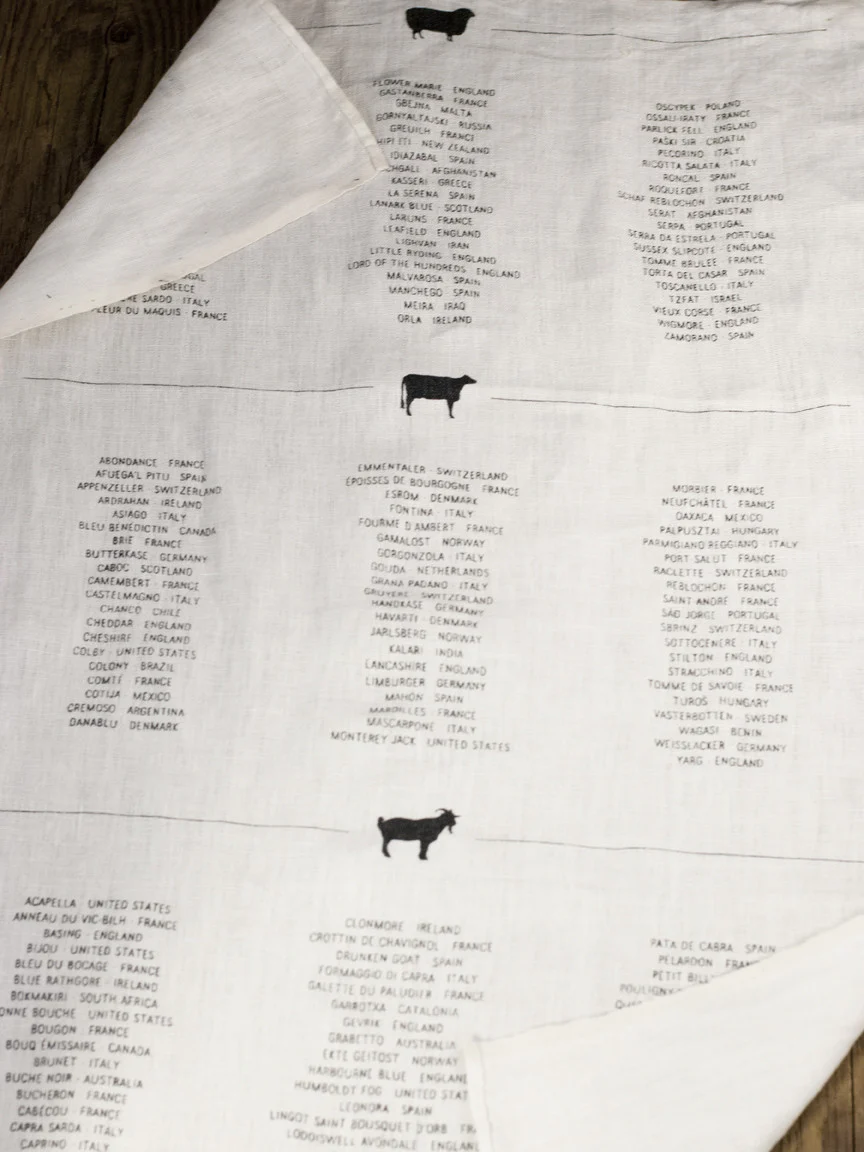 GREECE
SARDO · ITALY
FLEUR DU MAQUIS · FRANCE
FLOWER MARIE · ENGLAND
GASTANBERRA · FRANCE
GBEJNA · MALTA
GORNYALTAJSKI · RUSSIA
GREUILH · FRANCE
HIPI ITI · NEW ZEALAND
IDIAZABAL · SPAIN
AFGHANISTAN
KASSERI · GREECE
LA SERENA · SPAIN
LANARK BLUE · SCOTLAND
LARUNS · FRANCE
LEAFIELD · ENGLAND
LIGHVAN · IRAN
LITTLE RYDING · ENGLAND
LORD OF THE HUNDREDS · ENGLAND
MALVAROSA · SPAIN
MANCHEGO · SPAIN
MEIRA · IRAQ
ORLA · IRELAND
OSCYPEK · POLAND
OSSAU-IRATY · FRANCE
PARLICK FELL · ENGLAND
PAŠKI SIR · CROATIA
PECORINO · ITALY
RICOTTA SALATA · ITALY
RONCAL · SPAIN
ROQUEFORT · FRANCE
SCHAF REBLOCHON · SWITZERLAND
SERAT · AFGHANISTAN
SERPA · PORTUGAL
SERRA DA ESTRELA · PORTUGAL
SUSSEX SLIPCOTE · ENGLAND
TOMME BRULEE · FRANCE
TORTA DEL CASAR · SPAIN
TOSCANELLO · ITALY
TZFAT · ISRAEL
VIEUX CORSE · FRANCE
WIGMORE · ENGLAND
ZAMORANO · SPAIN
ABONDANCE · FRANCE
AFUEGA'L PITU · SPAIN
APPENZELLER · SWITZERLAND
ARDRAHAN · IRELAND
ASIAGO · ITALY
BLEU BENEDICTIN · CANADA
BRIE · FRANCE
BUTTERKASE · GERMANY
CABOC · SCOTLAND
CAMEMBERT · FRANCE
CASTELMAGNO · ITALY
CHANCO · CHILE
CHEDDAR · ENGLAND
CHESHIRE · ENGLAND
COLBY · UNITED STATES
COLONY · BRAZIL
COMTÉ · FRANCE
COTIJA · MEXICO
CREMOSO · ARGENTINA
DANABLU · DENMARK
EMMENTALER · SWITZERLAND
ÉPOISSES DE BOURGOGNE · FRANCE
ESROM · DENMARK
FONTINA · ITALY
FOURME D'AMBERT · FRANCE
GAMALOST · NORWAY
GORGONZOLA · ITALY
GOUDA · NETHERLANDS
GRANA PADANO · ITALY
GRUYERE · SWITZERLAND
HANDKASE · GERMANY
HAVARTI · DENMARK
JARLSBERG · NORWAY
KALARI · INDIA
LANCASHIRE · ENGLAND
LIMBURGER · GERMANY
MAHÓN · SPAIN
MAROILLES · FRANCE
MASCARPONE · ITALY
MONTEREY JACK · UNITED STATES
MORBIER · FRANCE
NEUFCHÂTEL · FRANCE
OAXACA · MEXICO
PALPUSZTAI · HUNGARY
PARMIGIANO REGGIANO · ITALY
PORT SALUT · FRANCE
RACLETTE · SWITZERLAND
REBLOCHON · FRANCE
SAINT-ANDRÉ · FRANCE
SÃO JORGE · PORTUGAL
SBRINZ · SWITZERLAND
SOTTOCENERE · ITALY
STILTON · ENGLAND
STRACCHINO · ITALY
TOMME DE SAVOIE · FRANCE
TUROŠ · HUNGARY
VASTERBOTTEN · SWEDEN
WAGASI · BENIN
WEISSLACKER · GERMANY
YARG · ENGLAND
ACAPELLA · UNITED STATES
ANNEAU DU VIC-BILH · FRANCE
BASING · ENGLAND
BIJOU · UNITED STATES
BLEU DU BOCAGE · FRANCE
BLUE RATHGORE · IRELAND
BOKMAKIRI · SOUTH AFRICA
BOUCHE · UNITED STATES
BOUGON · FRANCE
BOUQ ÉMISSAIRE · CANADA
BRUNET · ITALY
BUCHE NOIR · AUSTRALIA
BUCHERON · FRANCE
CABÉCOU · FRANCE
CAPRA SARDA · ITALY
CAPRINO · ITALY
CLONMORE · IRELAND
CROTTIN DE CHAVIGNOL · FRANCE
DRUNKEN GOAT · SPAIN
FORMAGGIO DI CAPRA · ITALY
GALETTE DU PALUDIER · FRANCE
GARROTXA · CATALONIA
GEVRIK · ENGLAND
GRABETTO · AUSTRALIA
EKTE GEITOST · NORWAY
HARBOURNE BLUE · ENGLAND
HUMBOLDT FOG · UNITED STAT
LEONORA · SPAIN
LINGOT SAINT BOUSQUET D'ORB · FR
LODDISWELL AVONDALE · ENGLAN
PATA DE CABRA · SPAIN
PELARDON · FRAN
PETIT BILL
POULIGNY